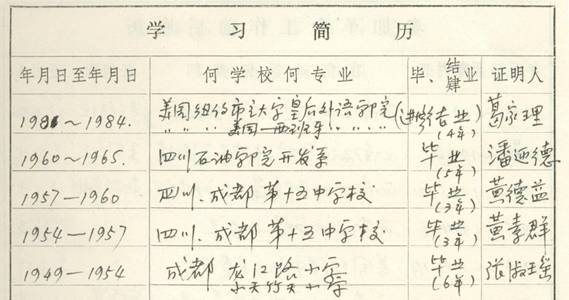 学习简历
年月日至年月日 何学校何专业 毕、结肄业 证明人
1981～1984. 美国纽约市立大学皇后外语学院 (进修) 结业 葛家理
〃 〃 〃 〃 美国—西班牙 〃 〃 〃 〃 (4年)
1960～1965. 四川石油学院开发系 毕业 潘迺德
(5年)
1957—1960 四川.成都第十五中学校 毕业 黄德益
(3年)
1954—1957 四川.成都第十五中学校 毕业 黄素群
(3年)
1949—1954 成都龙江路小学 毕业 张淑瑶
小天竺小学 (6年)